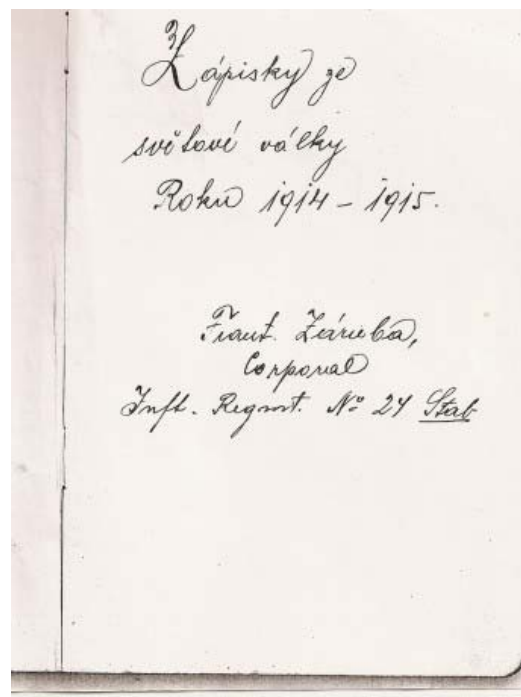 Zápisky ze
světové války
Roků 1914 – 1915.
Frant. Záruba,
Corporal
Inft. Regmt. Nº 24 Stab